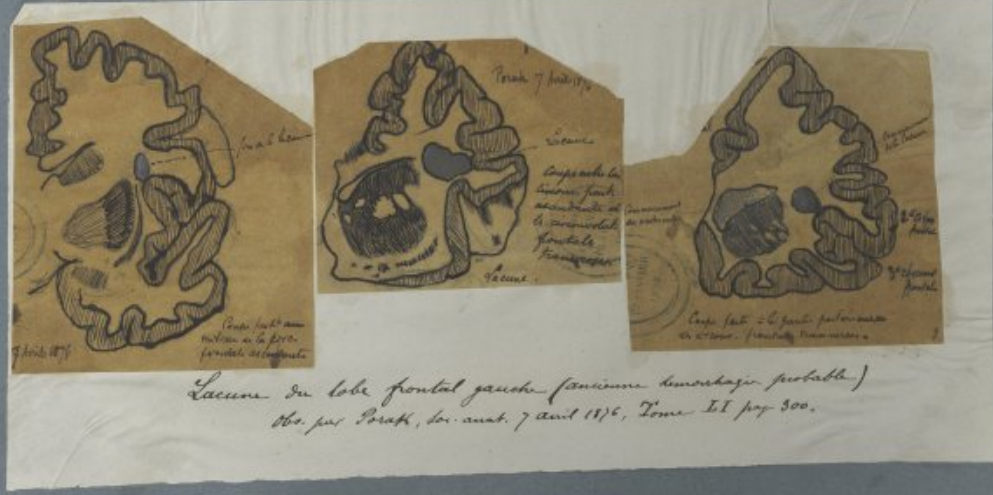 7 Avril 1876
Coupe faite au
milieu de la circ.
frontale ascendante
Porak 7 Avril 1876
Lacune
Coupe entre la
circonv. front.
ascendante et
la circonvolut.
frontale
transverse
Lacune.
Commencement
de la lacune
2e
frontale
3e circonv.
frontale
Coupe faite à la partie
frontales transverses.
Lacune du lobe frontal gauche (ancienne hémorrhagie probable)
Obs. par Porak, Soc. anat. 7 avril 1876, Tome LI pag 300.